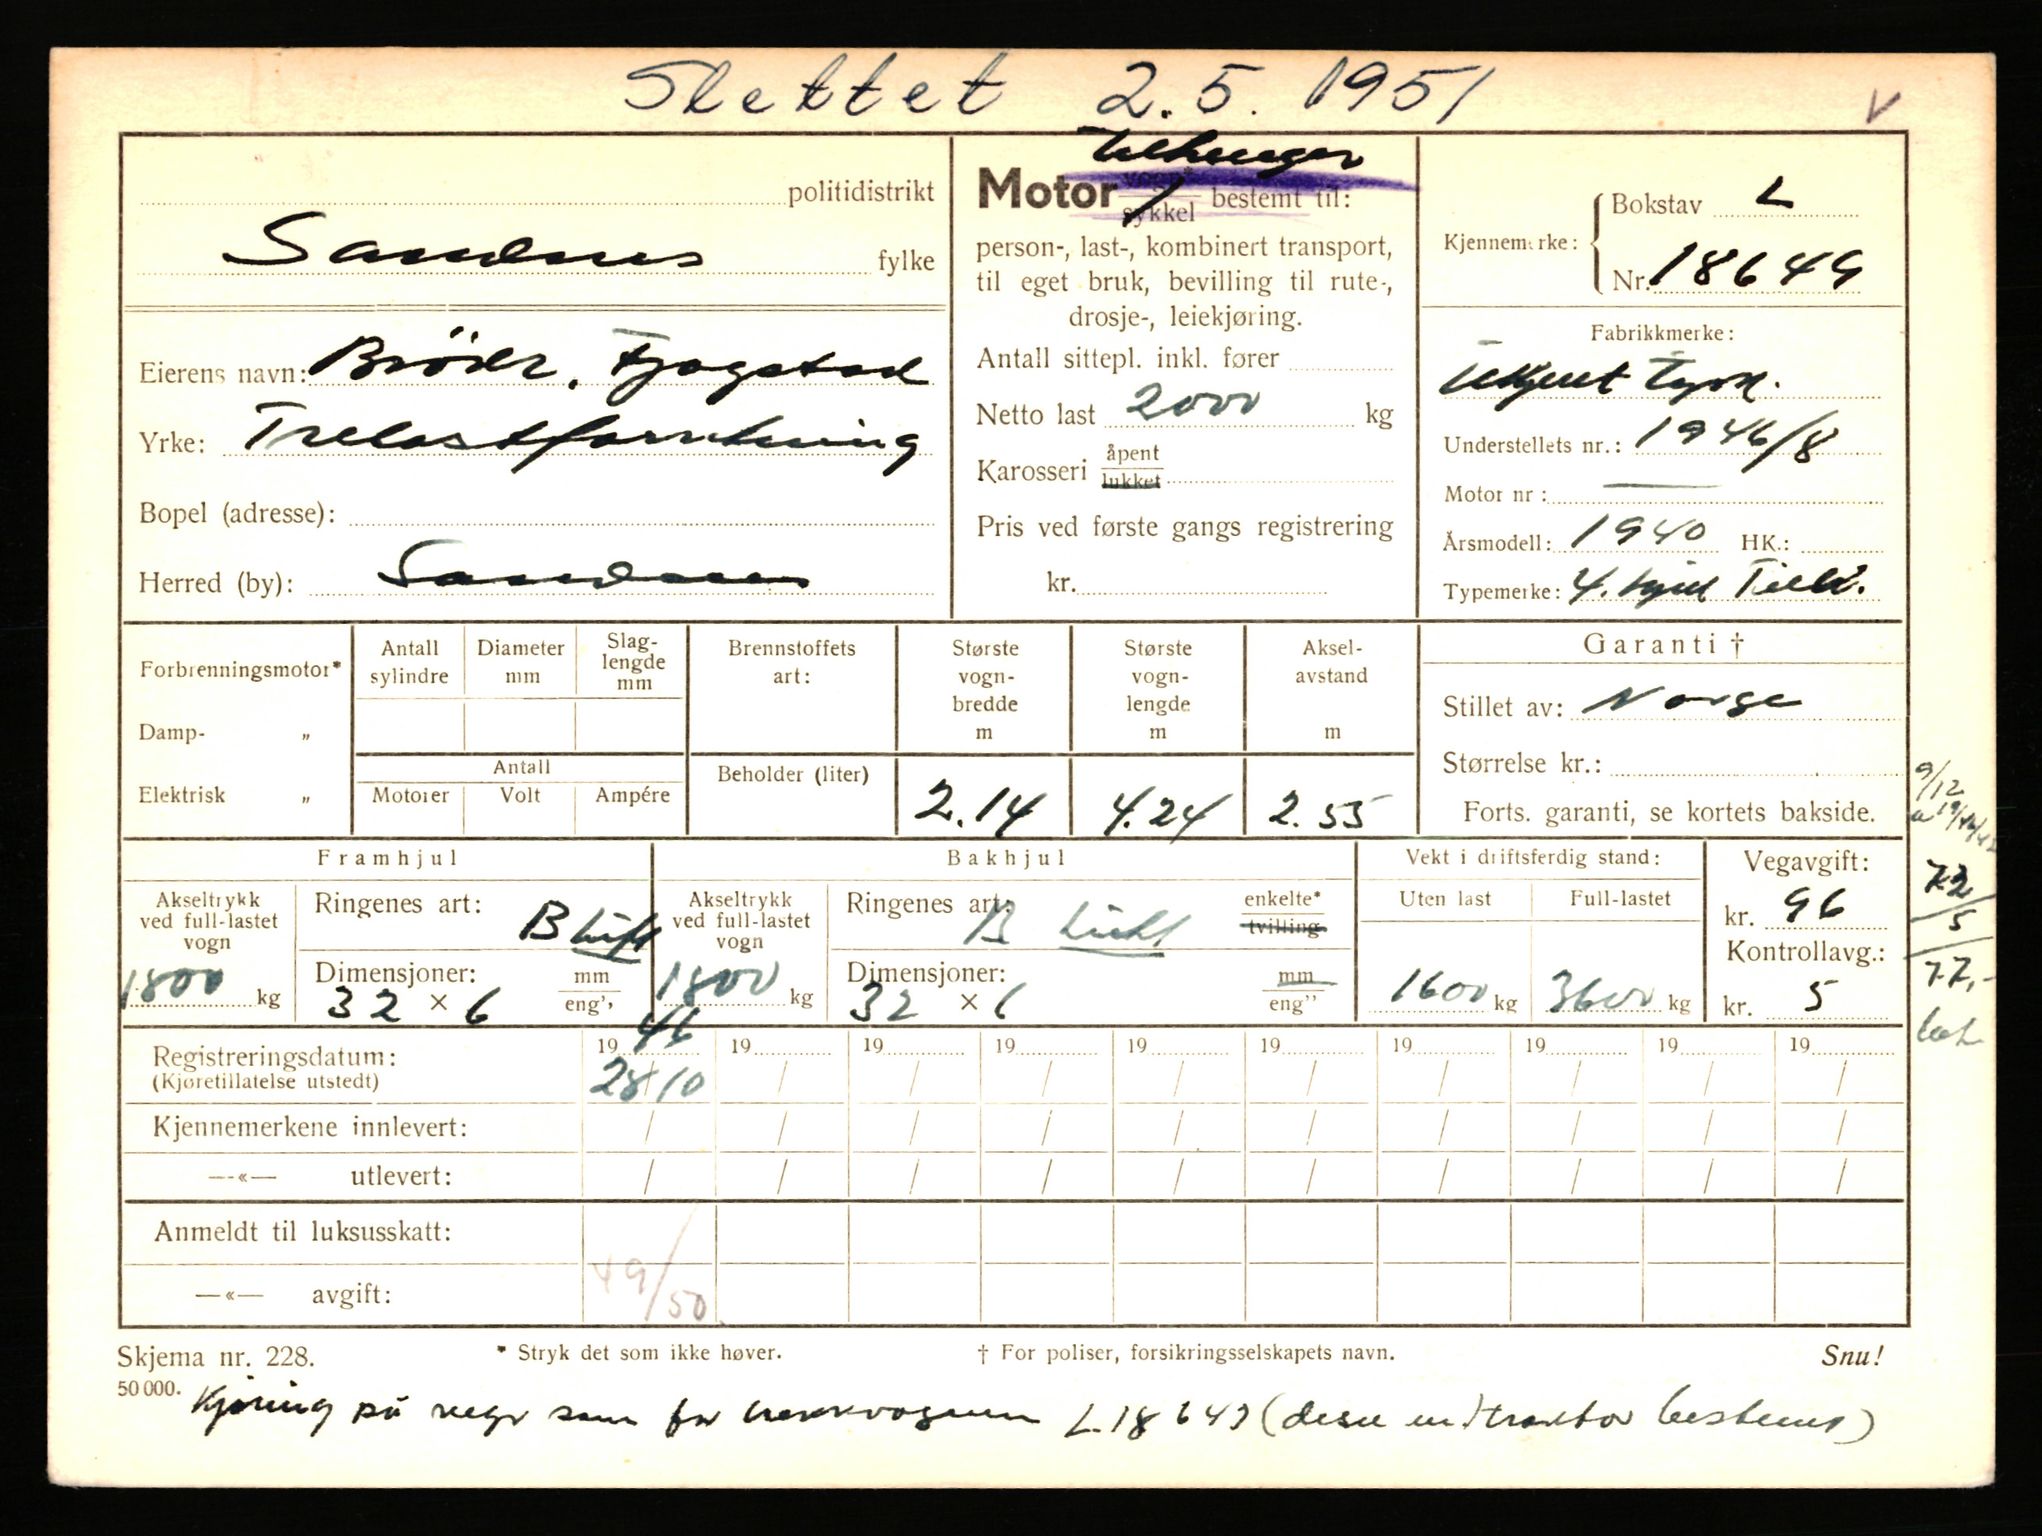 Slettet 2.5.1951
V
politidistrikt
Sandnes fylke
Eierens navn: Brödr. Fjogstad
Yrke: Trelastforretning
Bopel (adresse):
Herred (by): Sandnes
Tilhenger
Motor vogn* / sykkel bestemt til:
person-, last-, kombinert transport,
til eget bruk, bevilling til rute-,
drosje-, leiekjøring.
Antall sittepl. inkl. fører
Netto last 2000 kg
Karosseri åpent / lukket
Pris ved første gangs registrering
kr.
Kjennemerke: Bokstav L
Nr. 18649
Fabrikkmerke:
Ukjent Tysk.
Understellets nr.: 1946/8
Motor nr: —
Årsmodell: 1940 HK.:
Typemerke: 4. hjul Tilh.
Forbrenningsmotor*
Damp- „
Elektrisk „
Antall sylindre
Diameter mm
Slag-lengde mm
Antall
Motorer Volt Ampére
Brennstoffets art:
Beholder (liter)
Største vogn-bredde m
2.14
Største vogn-lengde m
4.24
Aksel-avstand m
2.55
Garanti †
Stillet av: Norge
Størrelse kr.:
Forts. garanti, se kortets bakside.
9/12
72
5
77,-
Framhjul
Akseltrykk ved full-lastet vogn
1800 kg
Ringenes art: B Luft
Dimensjoner: mm / eng''
32 × 6
Bakhjul
Akseltrykk ved full-lastet vogn
1800 kg
Ringenes art: B Luft
enkelte* / tvilling
Dimensjoner: mm / eng''
32 × 6
Vekt i driftsferdig stand:
Uten last Full-lastet
1600 kg 3600 kg
Vegavgift:
kr. 96
Kontrollavg.:
kr. 5
Registreringsdatum: 1946 19 19 19 19 19 19 19 19 19
(Kjøretillatelse utstedt) 28/10 / / / / / / / / /
Kjennemerkene innlevert: / / / / / / / / / /
—«— utlevert: / / / / / / / / / /
Anmeldt til luksusskatt:
—«— avgift:
49/50
Skjema nr. 228.
* Stryk det som ikke høver.
† For poliser, forsikringsselskapets navn.
Snu!
50 000.
Kjøring på veger som for trekkvognen L.18643 (desse er traktor bestemt)